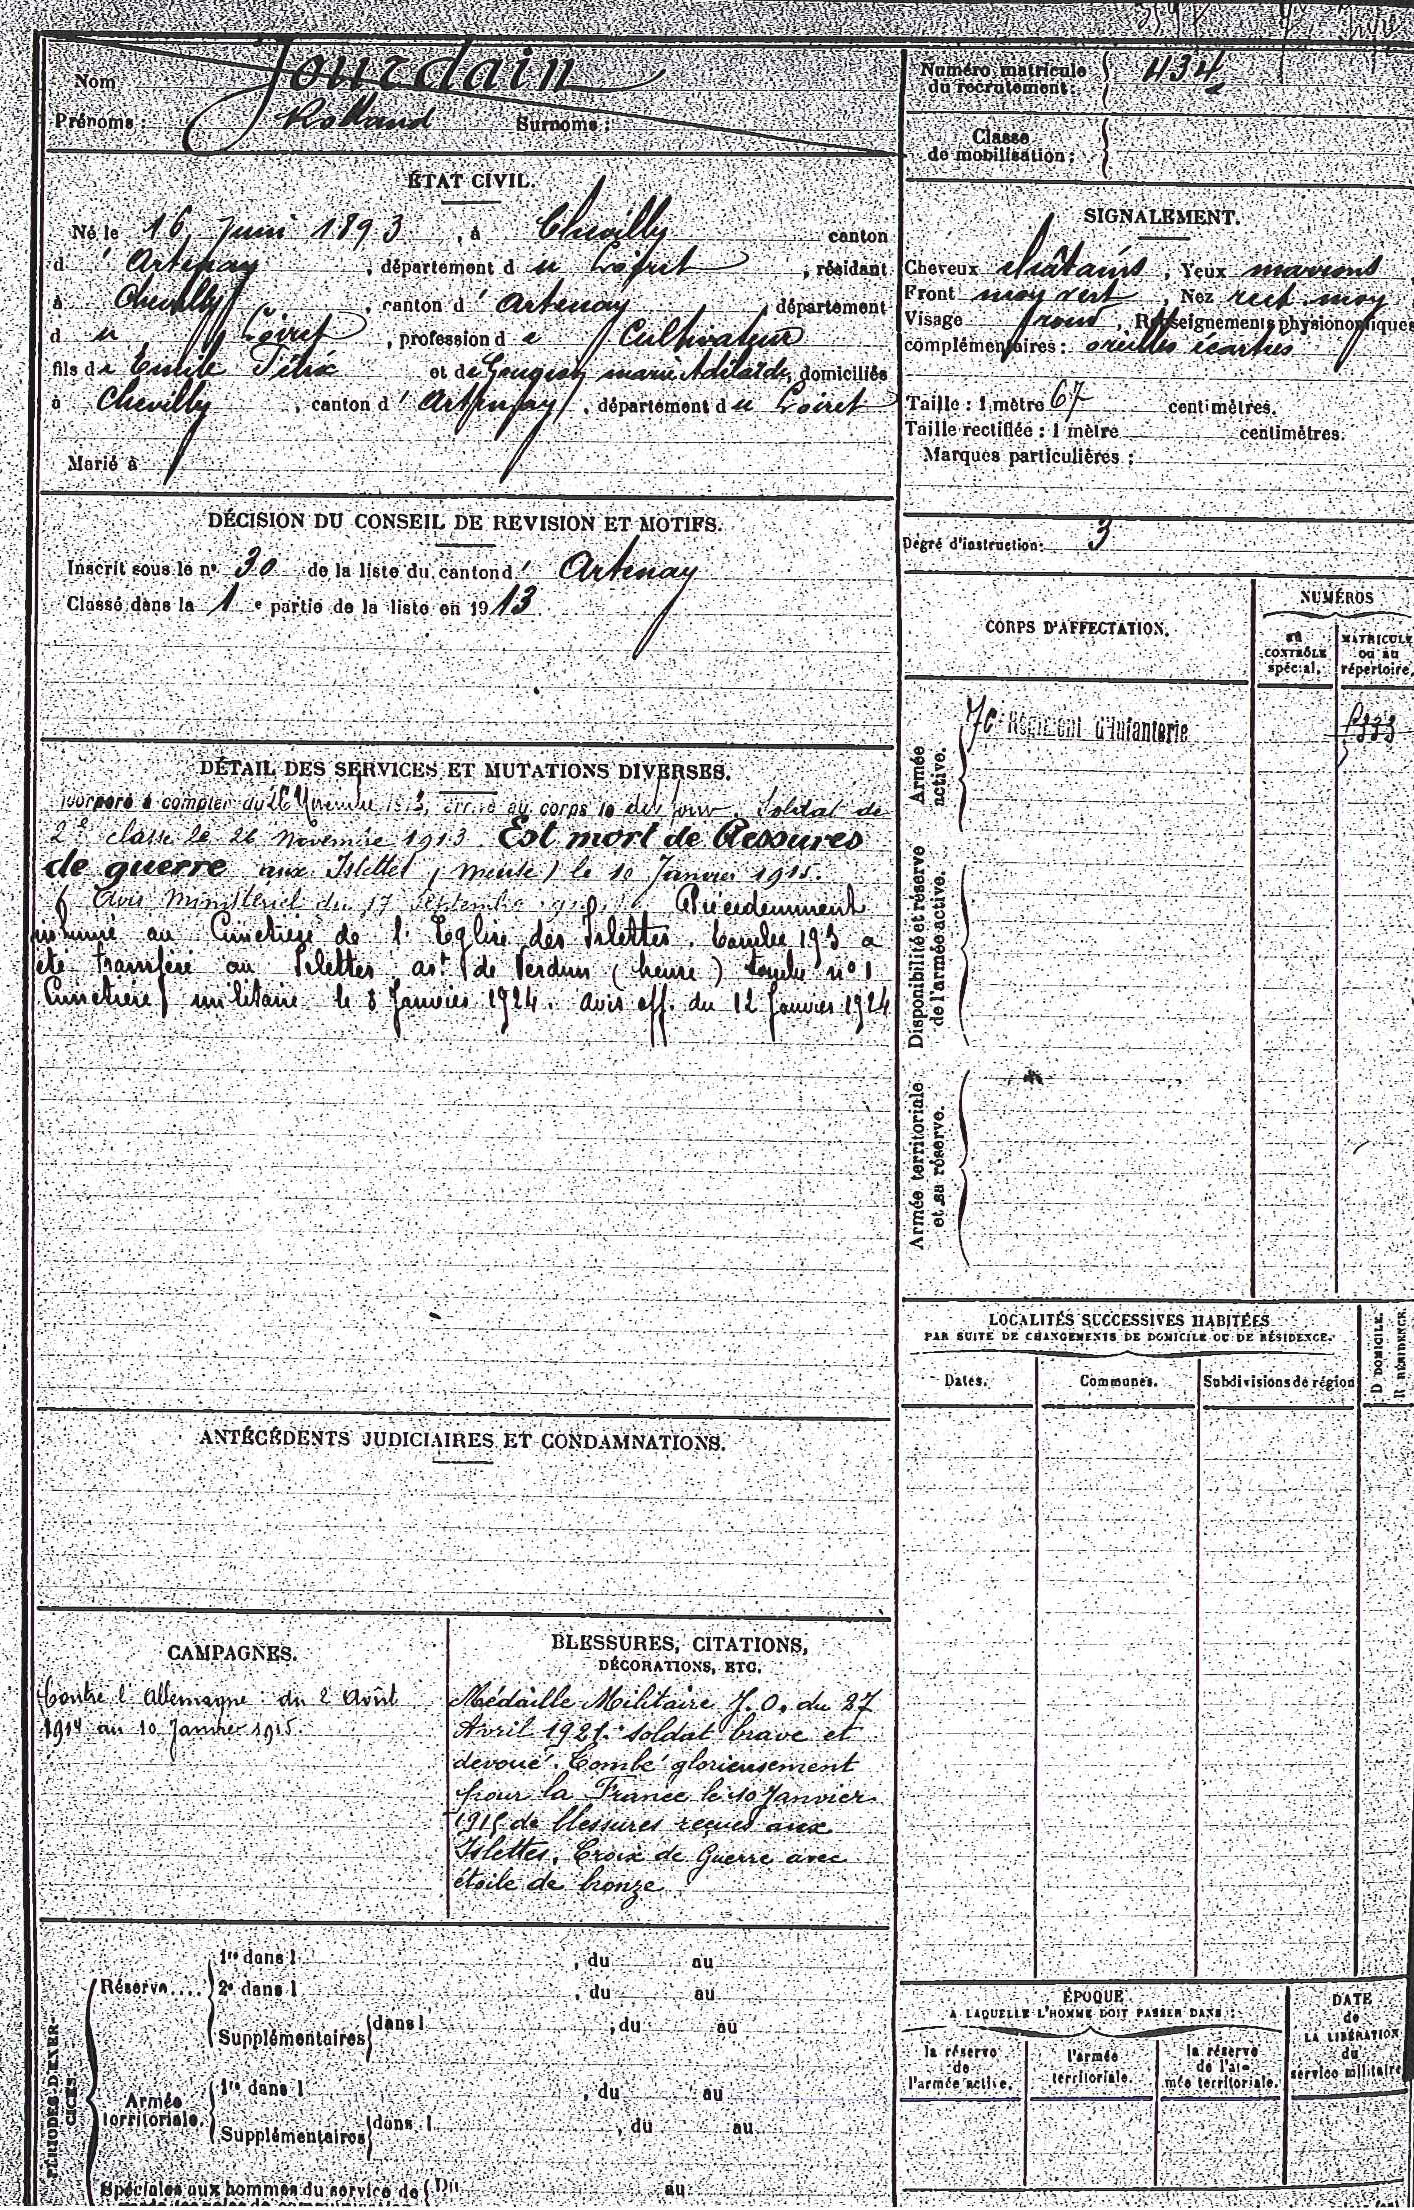 Nom Jourdain
Prénoms : Rolland Surnoms :
Numéro matricule du recrutement : 434
Classe de mobilisation :
ÉTAT CIVIL.
Né le 16 Juin 1893, à Chevilly canton
d' Artenay, département du Loiret, résidant
à Chevilly, canton d' Artenay département
du Loiret, profession de Cultivateur
fils de Emile Félix et de Marie Adélaïde, domiciliés
à Chevilly, canton d' Artenay, département du Loiret
Marié à
SIGNALEMENT.
Cheveux châtains, Yeux marrons,
Front moy vert, Nez rect. moy
Visage rond, Renseignements physionomiques
complémentaires : oreilles écartées
Taille : 1 mètre 67 centimètres.
Taille rectifiée : 1 mètre centimètres.
Marques particulières :
Degré d'instruction : 3
DÉCISION DU CONSEIL DE REVISION ET MOTIFS.
Inscrit sous le nº 30 de la liste du canton d' Artenay
Classé dans la 1e partie de la liste en 1913
CORPS D'AFFECTATION.
NUMÉROS
au CONTRÔLE spécial.
MATRICULE ou au répertoire.
Armée active.
7e Régiment d'Infanterie
Disponibilité et réserve de l'armée active.
Armée territoriale et sa réserve.
DÉTAIL DES SERVICES ET MUTATIONS DIVERSES.
Incorporé à compter du 26 Novembre 1913, arrivé au corps le dit jour. Soldat de
2e classe le 26 novembre 1913. Est mort de Blessures
de guerre aux Islettes (Meuse) le 10 Janvier 1915.
Avis Ministériel du 17 Septembre Précédemment
inhumé au Cimetière de l'Eglise des Islettes. tombe 193 a
été transféré au Islettes art de Verdun (Meuse) tombe nº 1
Cimetière militaire le 8 Janvier 1924. avis off. du 12 Janvier 1924
LOCALITÉS SUCCESSIVES HABITÉES
PAR SUITE DE CHANGEMENTS DE DOMICILE OU DE RÉSIDENCE.
Dates. Communes. Subdivisions de région
D DOMICILE.
R RÉSIDENCE.
ANTÉCÉDENTS JUDICIAIRES ET CONDAMNATIONS.
CAMPAGNES.
Contre l'Allemagne : du 2 Août
1914 au 10 Janvier 1915.
BLESSURES, CITATIONS,
DÉCORATIONS, ETC.
Médaille Militaire J.O. du 27
Avril 1921. soldat brave et
dévoué. Tombé glorieusement
pour la France le 10 Janvier
1915 de blessures reçues aux
Islettes. Croix de Guerre avec
étoile de bronze
PÉRIODES D'EXERCICES.
Réserve....
1re dans l , du au
2e dans l , du au
Supplémentaires dans l , du au
Armée territoriale.
1re dans l , du au
Supplémentaires dans l , du au
Spéciales aux hommes du service de Du au
ÉPOQUE
A LAQUELLE L'HOMME DOIT PASSER DANS :
la réserve de l'armée active.
l'armée territoriale.
la réserve de l'armée territoriale.
DATE de LA LIBÉRATION du service militaire